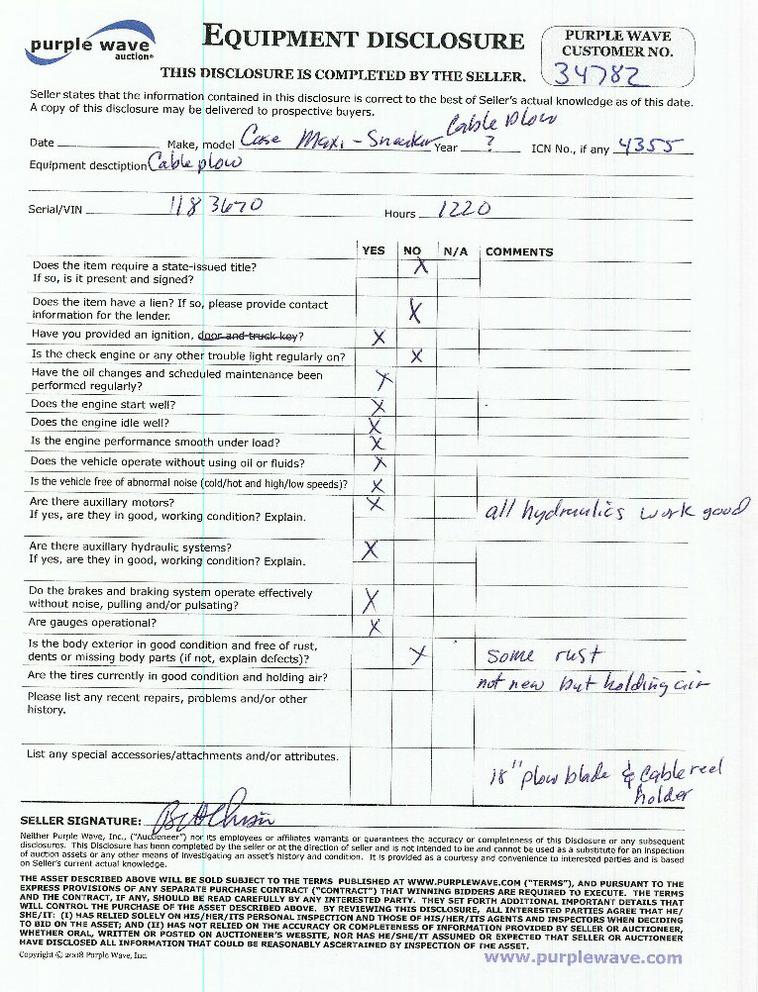 purple wave
auction®
EQUIPMENT DISCLOSURE
PURPLE WAVE
CUSTOMER NO.
34782
THIS DISCLOSURE IS COMPLETED BY THE SELLER.
Seller states that the information contained in this disclosure is correct to the best of Seller's actual knowledge as of this date.
A copy of this disclosure may be delivered to prospective buyers.
Cable Plow
Date Make, model Case Maxi-Sneaker Year ? ICN No., if any 4355
Equipment desctiption Cable plow
Serial/VIN 1183670 Hours 1220
YES NO N/A COMMENTS
Does the item require a state-issued title? X
If so, is it present and signed?
Does the item have a lien? If so, please provide contact X
information for the lender.
Have you provided an ignition, door and truck key? X
Is the check engine or any other trouble light regularly on? X
Have the oil changes and scheduled maintenance been X
performed regularly?
Does the engine start well? X
Does the engine idle well? X
Is the engine performance smooth under load? X
Does the vehicle operate without using oil or fluids? X
Is the vehicle free of abnormal noise (cold/hot and high/low speeds)? X
Are there auxillary motors? X
If yes, are they in good, working condition? Explain. all hydraulics work good
Are there auxillary hydraulic systems? X
If yes, are they in good, working condition? Explain.
Do the brakes and braking system operate effectively X
without noise, pulling and/or pulsating?
Are gauges operational? X
Is the body exterior in good condition and free of rust,
dents or missing body parts (if not, explain defects)? X some rust
Are the tires currently in good condition and holding air? not new but holding air
Please list any recent repairs, problems and/or other
history.
List any special accessories/attachments and/or attributes.
18" plow blade & Cable reel
holder
SELLER SIGNATURE:
Neither Purple Wave, Inc., ("Auctioneer") nor its employees or affiliates warrants or guarantees the accuracy or completeness of this Disclosure or any subsequent
disclosures. This Disclosure has been completed by the seller or at the direction of seller and is not intended to be and cannot be used as a substitute for an inspection
of auction assets or any other means of investigating an asset's history and condition. It is provided as a courtesy and convenience to interested parties and is based
on Seller's current actual knowledge.
THE ASSET DESCRIBED ABOVE WILL BE SOLD SUBJECT TO THE TERMS PUBLISHED AT WWW.PURPLEWAVE.COM ("TERMS"), AND PURSUANT TO THE
EXPRESS PROVISIONS OF ANY SEPARATE PURCHASE CONTRACT ("CONTRACT") THAT WINNING BIDDERS ARE REQUIRED TO EXECUTE. THE TERMS
AND THE CONTRACT, IF ANY, SHOULD BE READ CAREFULLY BY ANY INTERESTED PARTY. THEY SET FORTH ADDITIONAL IMPORTANT DETAILS THAT
WILL CONTROL THE PURCHASE OF THE ASSET DESCRIBED ABOVE. BY REVIEWING THIS DISCLOSURE, ALL INTERESTED PARTIES AGREE THAT HE/
SHE/IT: (I) HAS RELIED SOLELY ON HIS/HER/ITS PERSONAL INSPECTION AND THOSE OF HIS/HER/ITS AGENTS AND INSPECTORS WHEN DECIDING
TO BID ON THE ASSET; AND (II) HAS NOT RELIED ON THE ACCURACY OR COMPLETENESS OF INFORMATION PROVIDED BY SELLER OR AUCTIONEER,
WHETHER ORAL, WRITTEN OR POSTED ON AUCTIONEER'S WEBSITE, NOR HAS HE/SHE/IT ASSUMED OR EXPECTED THAT SELLER OR AUCTIONEER
HAVE DISCLOSED ALL INFORMATION THAT COULD BE REASONABLY ASCERTAINED BY INSPECTION OF THE ASSET.
Copyright © 2008 Purple Wave, Inc. www.purplewave.com